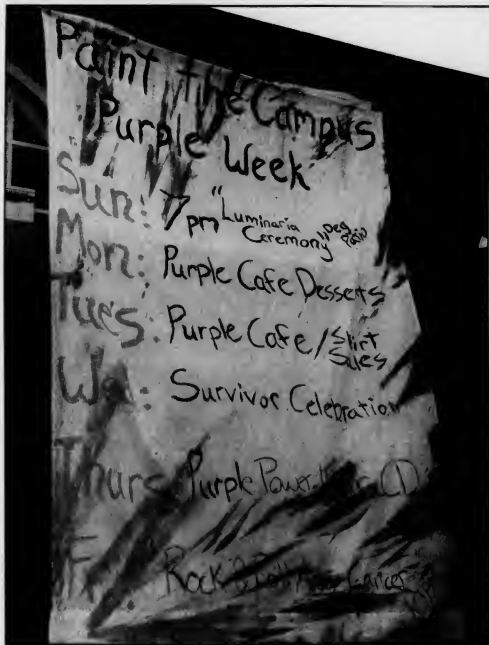 Paint the Campus
Purple Week
Sun: 7pm "Luminaria Ceremony"
Mon: Purple Cafe Desserts
Tues: Purple Cafe/Shirt Sales
Wed: Survivor Celebration
Thurs: Purple Power CD
Rock